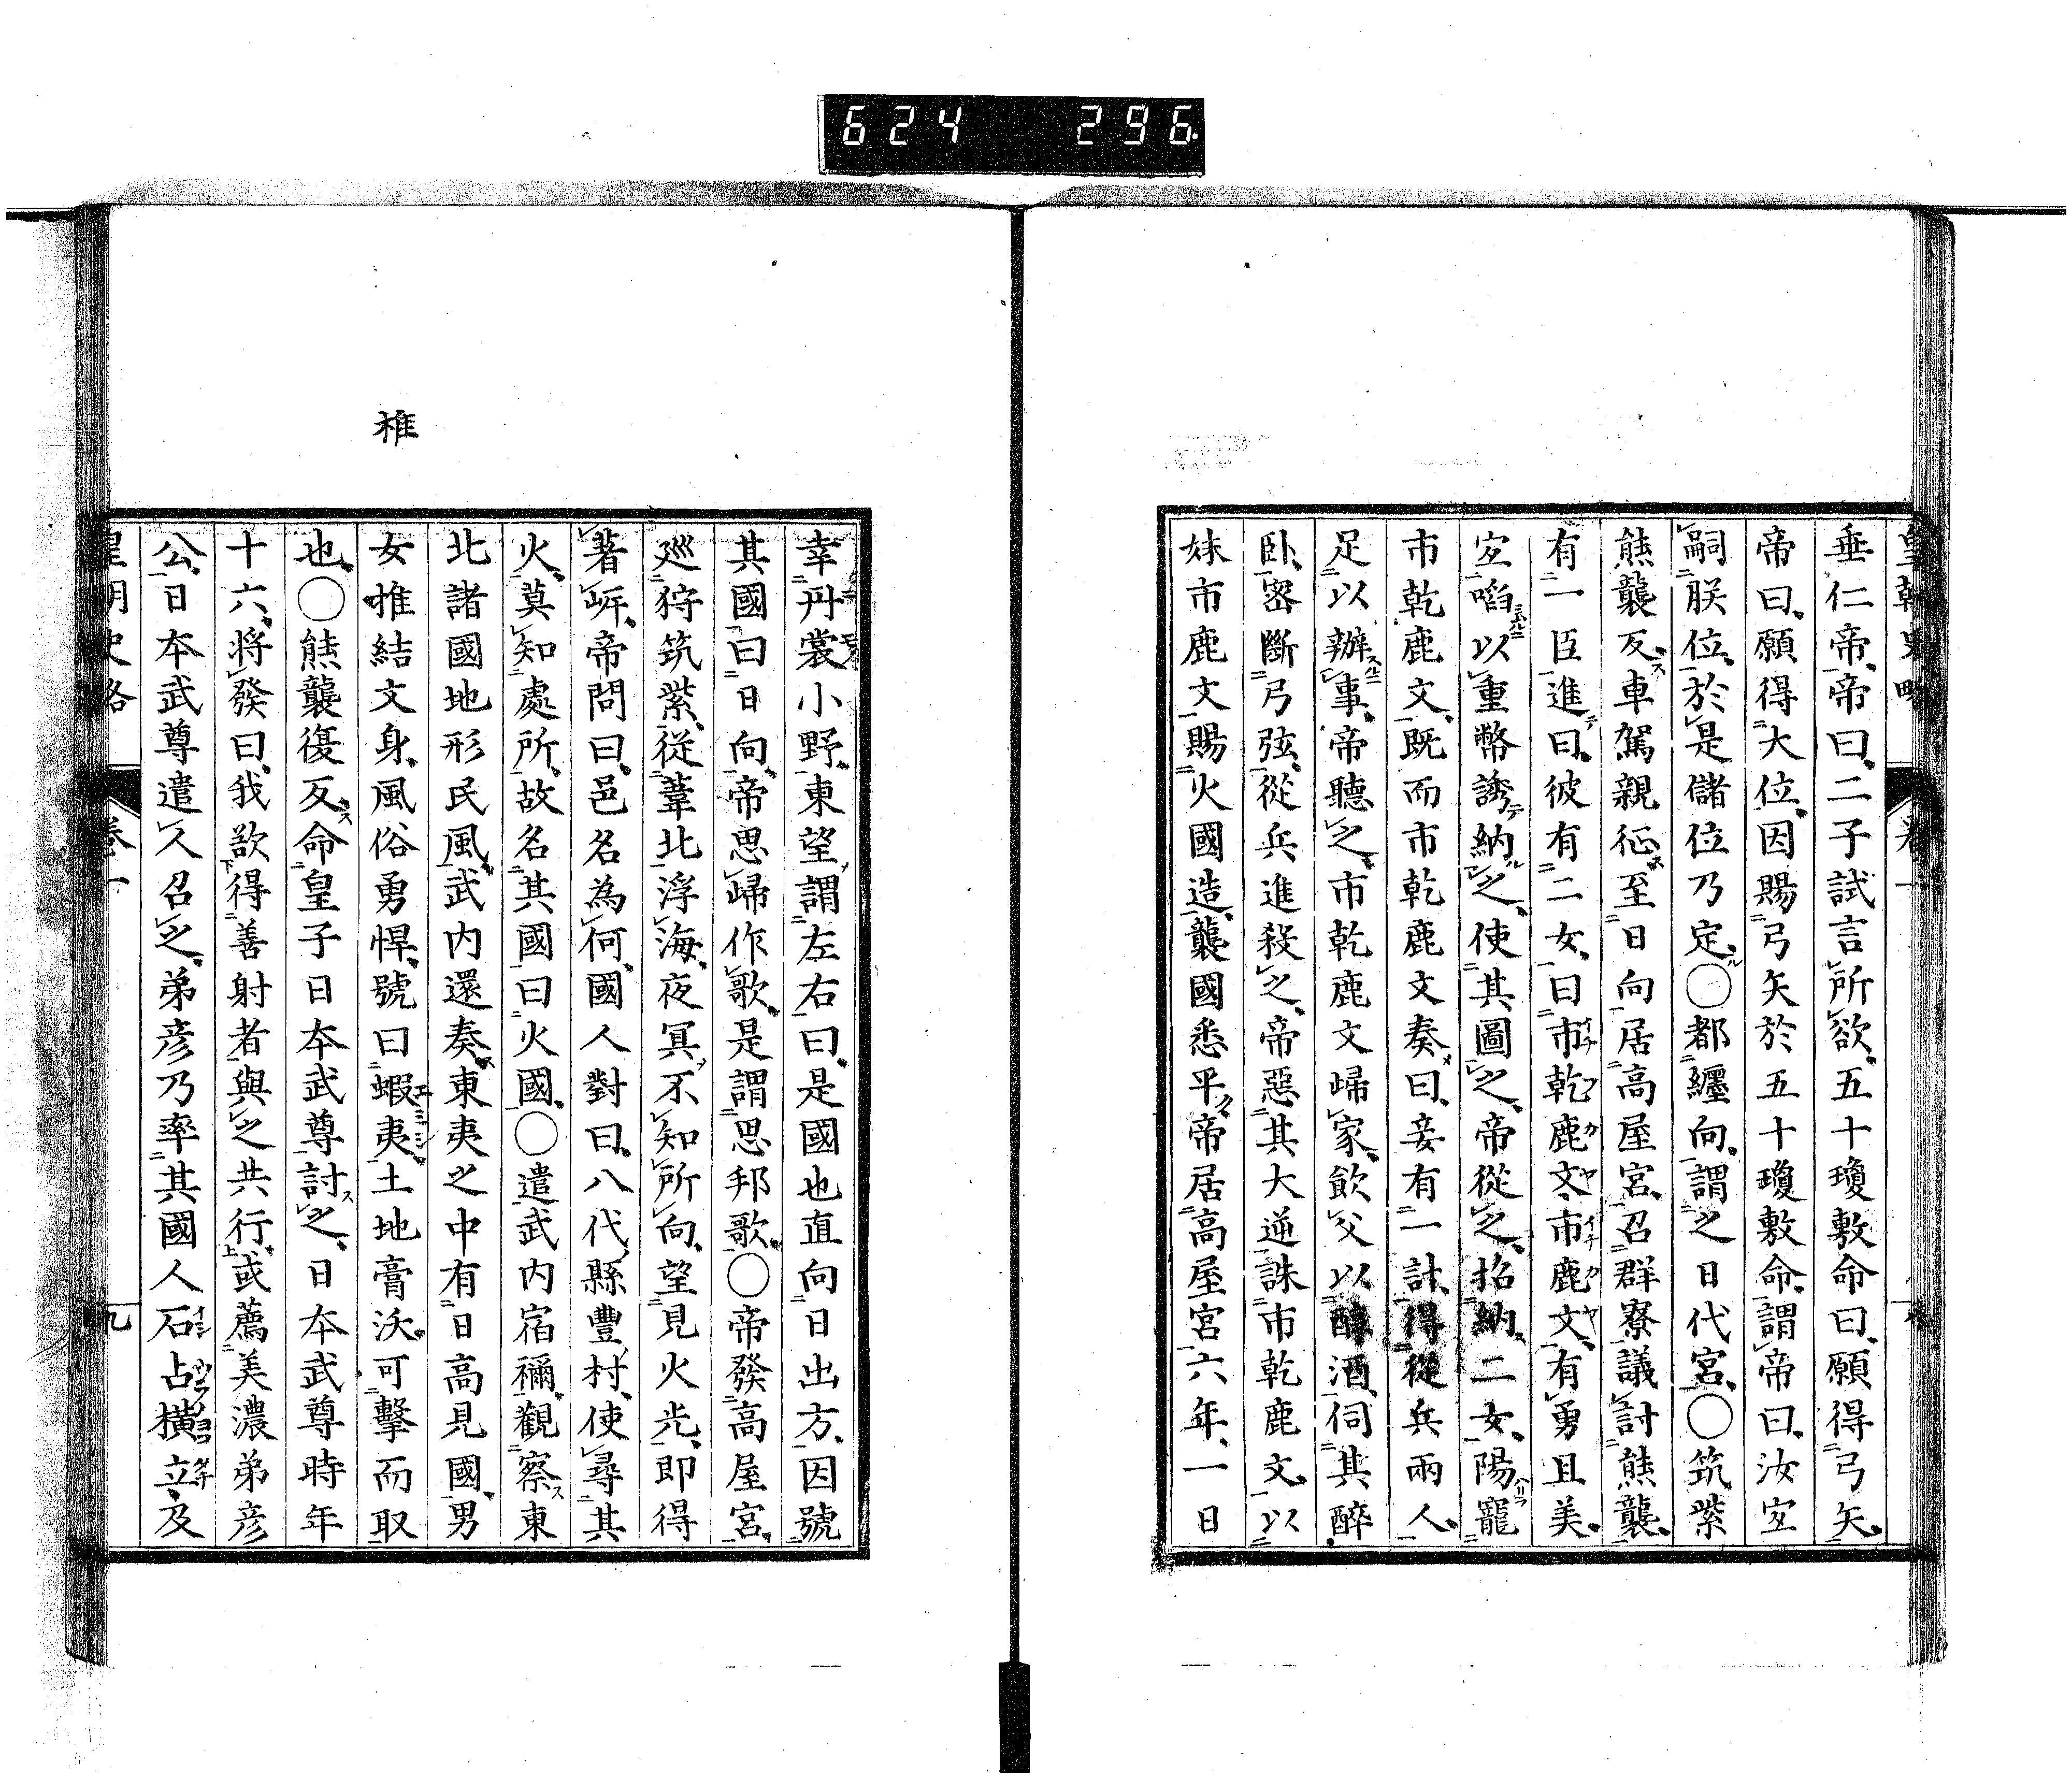 624 296
皇朝史略 卷一
垂仁帝、帝曰、二子試言所欲、五十瓊敷命曰、願得弓矢、
帝曰、願得大位、因賜弓矢於五十瓊敷命、謂帝曰、汝宜
嗣朕位、於是儲位乃定、○都纏向、謂之日代宮、○筑紫
熊襲反、車駕親征、至日向、居高屋宮、召群寮議討熊襲、
有一臣進曰、彼有二女、曰市乾鹿文、市鹿文、有勇且美、
宜啗以重幣誘納之、使其圖之、帝從之、招納二女、陽寵
市乾鹿文、既而市乾鹿文奏曰、妾有一計、得從兵兩人、
足以辦事、帝聽之、市乾鹿文歸家、飲父以醇酒、伺其醉
臥、密斷弓弦、從兵進殺之、帝惡其大逆、誅市乾鹿文、以
妹市鹿文、賜火國造、襲國悉平、帝居高屋宮六年、一日
幸丹裳小野、東望謂左右曰、是國也直向日出方、因號
其國曰日向、帝思歸作歌、是謂思邦歌、○帝發高屋宮、
巡狩筑紫、從葦北浮海、夜冥不知所向、望見火光、即得
著岸、帝問曰、邑名為何、國人對曰、八代縣豐村、使尋其
火、莫知處所、故名其國曰火國、○遣武內宿禰、觀察東
北諸國地形民風、武內還奏、東夷之中有日高見國、男
女推結文身、風俗勇悍、號曰蝦夷、土地膏沃、可擊而取
椎
也、○熊襲復反、命皇子日本武尊討之、日本武尊時年
十六、將發曰、我欲得善射者與之共行、或薦美濃弟彥
公、日本武尊遣人召之、弟彥乃率其國人石占橫立、及
皇朝史略 卷一 九